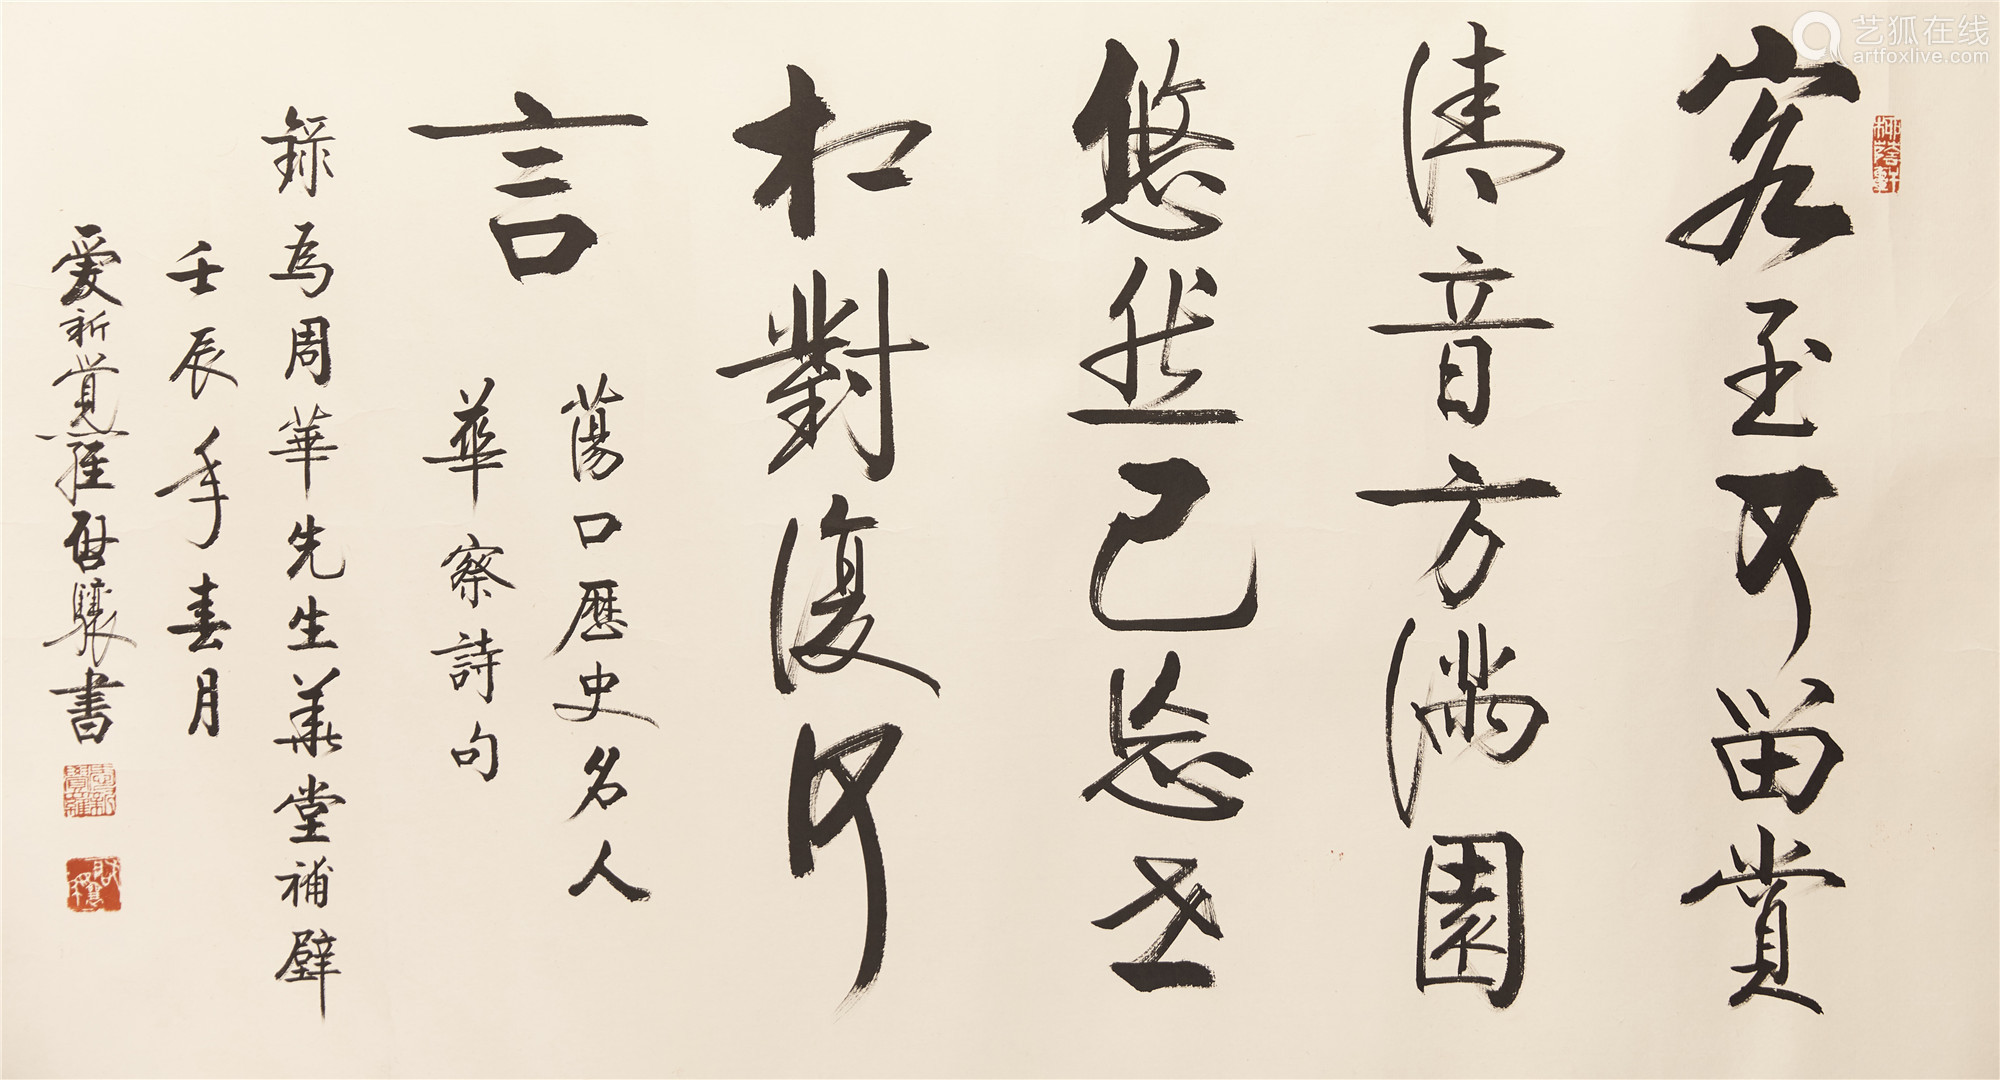 客至可留賞
清音方滿園
悠然已忘世
相對復何
言
蕩口歷史名人
華察詩句
錄為周華先生華堂補壁
壬辰年春月
愛新覺羅啟驤書
柳蔭軒
艺狐在线
artfoxlive.com